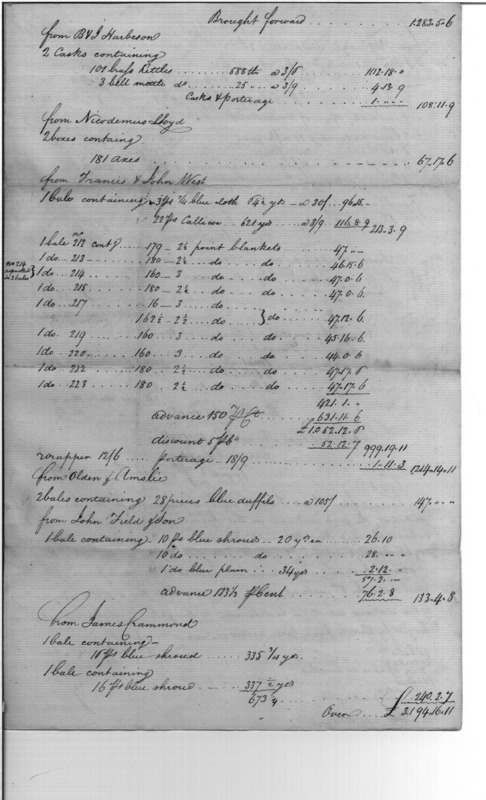 Brought forward ..... 1283-5-6
from B & J Harbeson
2 Casks containing
101 brass Kettles ...... 588 lb a 3/6 ..... 102.18.0
3 bell mettle do .... 25 .. a 3/9 ..... 4.13.9
Casks & porterage ..... 1.,,.,, 108.11.9
from Nicodemus Lloyd
2 boxes containg
181 axes ..... 67.17.6
from Francis & John West
1 bale containing 3 ps 7/4 blue cloth 64½ yds - a 30/ .. 96.15.-
22 ps Callicoe .. 621 yds .. a 3/9 116.8.9 213.3.9
1 bale no 212 contg .. 179 - 2½ point blankets ..... 47.,,.,,
1 do .. 213 ..... 180 - 2½ ... do ..... do ..... 46.15.6
no 214
in 2 bales
1 do .. 214 ..... 160 .. 3 ... do ..... do ..... 47.0.6
1 do .. 215 ..... 180 - 2½ ... do ..... do ..... 47.0.6
1 do .. 257 ..... 16 - 3 ... do
162½ - 2½ ... do } do ..... 47.12.6
1 do .. 219 ..... 160 .. 3 ... do ..... do ..... 45.16.6
1 do .. 220 ..... 160 .. 3 ... do ..... do ..... 44.0.6
1 do .. 222 ..... 180 .. 2½ ... do ..... do ..... 47.17.6
1 do .. 223 ..... 180 2½ ... do ..... do ..... 47.17.6
421.1.,,
advance 150 P Ct .. 631.11.6
£1052.12.6
discount 5 P Co ..... 52.12.7 999.19.11
wrapper 12/6 .... porterage 18/9 ..... 1-11-3 1214.14.11
from Olden & Amelie
2 bales containing 28 pieces blue duffils .. a 105/ ..... 147.,,.,,
from John Field & Son
1 bale containing 10 ps blue shroud .. 20 yds ea ... 26.10
10 do ..... do ..... 28.,,.,,
1 do blue plain ... 34 yds ..... 2.12.,,
57.2.,,
advance 133⅓ P Cent ... 76.2.8 133.4.8
from James Crammond
1 bale containing -
16 ps blue shroud ..... 335¼ yds
1 bale containing
16 ps blue shroud ..... 337½ yds
673 a ..... 240.2.7
Over ..... £ 3194.16.11